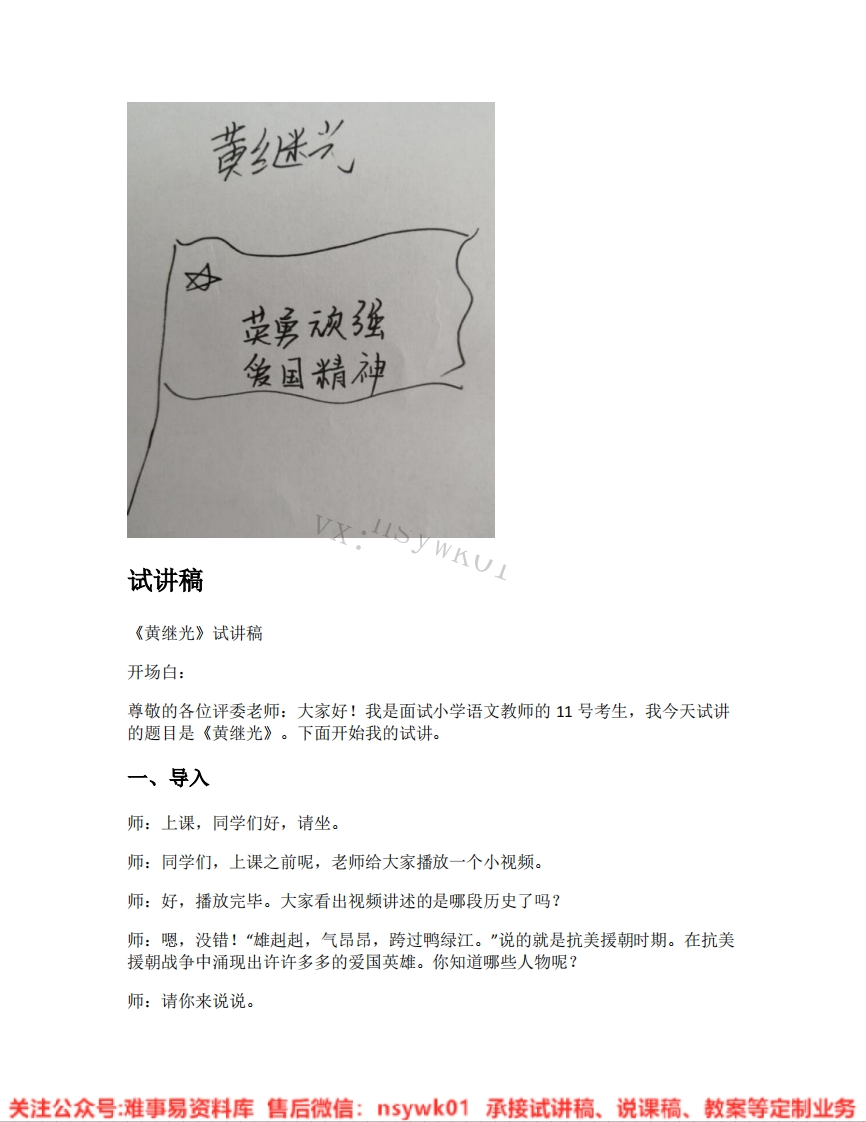 黄继光
英勇顽强
爱国精神
VX:nsywk01
试讲稿
《黄继光》试讲稿
开场白：
尊敬的各位评委老师：大家好！我是面试小学语文教师的 11 号考生，我今天试讲
的题目是《黄继光》。下面开始我的试讲。
一、导入
师：上课，同学们好，请坐。
师：同学们，上课之前呢，老师给大家播放一个小视频。
师：好，播放完毕。大家看出视频讲述的是哪段历史了吗？
师：嗯，没错！“雄赳赳，气昂昂，跨过鸭绿江。”说的就是抗美援朝时期。在抗美
援朝战争中涌现出许许多多的爱国英雄。你知道哪些人物呢？
师：请你来说说。
关注公众号:难事易资料库 售后微信：nsywk01 承接试讲稿、说课稿、教案等定制业务